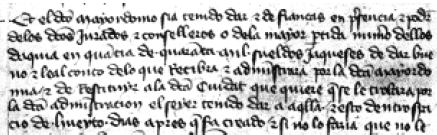 Et el dito mayordomo sia tenido dar & de fianças en presencia & poder
delos ditos Jurados & conselleros o dela mayor partida dellos
daqua en quantia de quaranta mil sueldos jaqueses de dar bue
no & leal conto delo que Recibra & administrara por la dita mayordo
mia & de Restituyr ala dita Ciudat que quiere que se le trobara por
la dita administracion el seyer tenido dar a aquella & esto dentro spa
cio de hueyto dias apres que sia creado & si no lo faria que no le